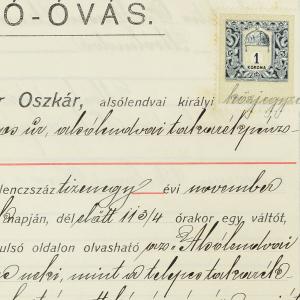 Ó-ÓVÁS.
1
KORONA
r Oszkár, alsólendvai királyi közjegyző
úr, alsólendvai takarékpénz-
lenczszáz tizenegy évi november
napján, dél előtt 11 3/4 órakor egy, váltót,
ulsó oldalon olvasható prz. Alsólendvai
neki, mint a telepes takarék-